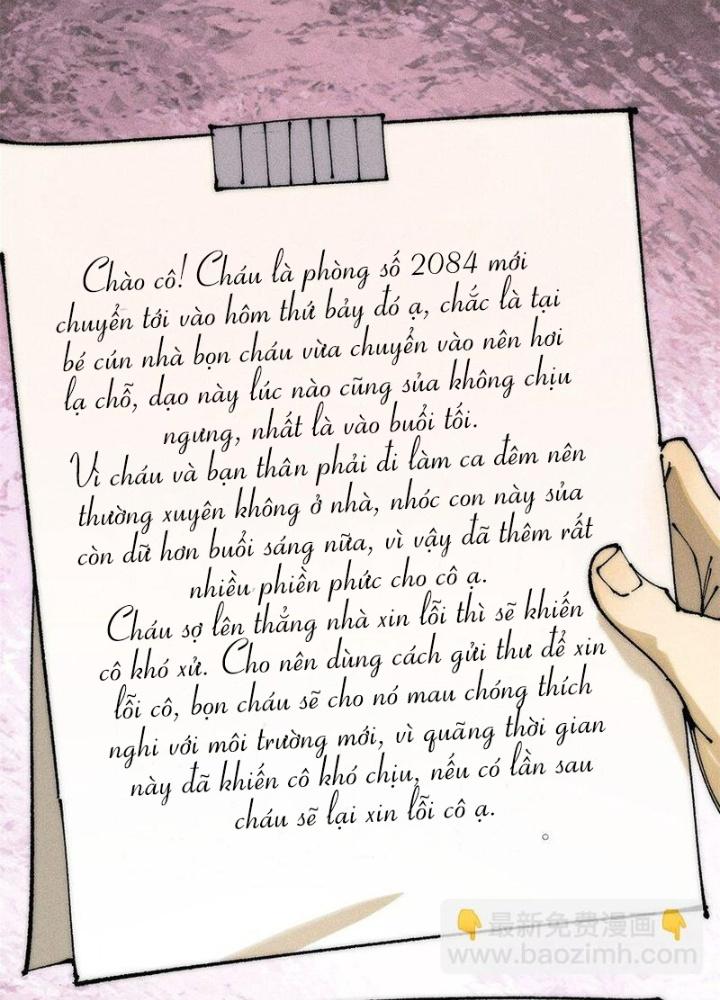 Chào cô! Cháu là phòng số 2084 mới
chuyển tới vào hôm thứ bảy đó ạ, chắc là tại
bé cún nhà bọn cháu vừa chuyển vào nên hơi
lạ chỗ, dạo này lúc nào cũng sủa không chịu
ngưng, nhất là vào buổi tối.
Vì cháu và bạn thân phải đi làm ca đêm nên
thường xuyên không ở nhà, nhóc con này sủa
còn dữ hơn buổi sáng nữa, vì vậy đã thêm rất
nhiều phiền phức cho cô ạ.
Cháu sợ lên thẳng nhà xin lỗi thì sẽ khiến
cô khó xử. Cho nên dùng cách gửi thư để xin
lỗi cô, bọn cháu sẽ cho nó mau chóng thích
nghi với môi trường mới, vì quãng thời gian
này đã khiến cô khó chịu, nếu có lần sau
cháu sẽ lại xin lỗi cô ạ.
。
👇最新免费漫画👇
www.baozimh.com